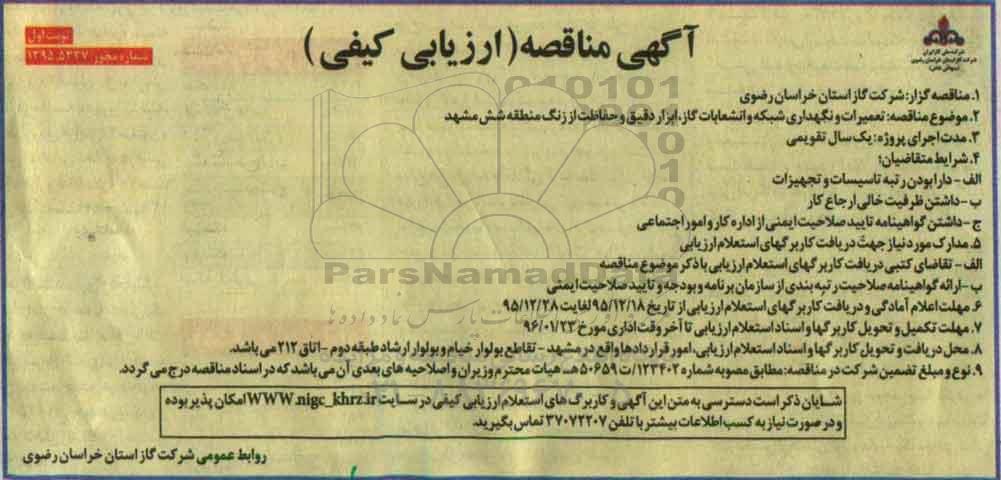 آگهی مناقصه (ارزیابی کیفی)
نوبت اول
شماره مجوز ۱۳۹۵،۵۳۳۷
شرکت ملی گاز ایران
شرکت گاز استان خراسان رضوی
(سهامی خاص)
۱. مناقصه گزار: شرکت گاز استان خراسان رضوی
۲. موضوع مناقصه: تعمیرات و نگهداری شبکه و انشعابات گاز، ابزار دقیق و حفاظت از زنگ منطقه شش مشهد
۳. مدت اجرای پروژه: یک سال تقویمی
۴. شرایط متقاضیان:
الف - دارا بودن رتبه تاسیسات و تجهیزات
ب - داشتن ظرفیت خالی ارجاع کار
ج - داشتن گواهینامه تایید صلاحیت ایمنی از اداره کار و امور اجتماعی
۵. مدارک مورد نیاز جهت دریافت کاربرگهای استعلام ارزیابی
الف - تقاضای کتبی دریافت کاربرگهای استعلام ارزیابی با ذکر موضوع مناقصه
ب - ارائه گواهینامه صلاحیت رتبه بندی از سازمان برنامه و بودجه و تایید صلاحیت ایمنی
۶. مهلت اعلام آمادگی و دریافت کاربرگهای استعلام ارزیابی از تاریخ ۹۵/۱۲/۱۸ لغایت ۹۵/۱۲/۲۸
۷. مهلت تکمیل و تحویل کاربرگها و اسناد استعلام ارزیابی تا آخر وقت اداری مورخ ۹۶/۰۱/۲۳
۸. محل دریافت و تحویل کاربرگها و اسناد استعلام ارزیابی، امور قراردادها واقع در مشهد - تقاطع بولوار خیام و بولوار ارشاد طبقه دوم - اتاق ۲۱۲ می باشد.
۹. نوع و مبلغ تضمین شرکت در مناقصه: مطابق مصوبه شماره ۱۲۳۴۰۲/ت ۵۰۶۵۹ هـ هیات محترم وزیران و اصلاحیه های بعدی آن می باشد که در اسناد مناقصه درج می گردد.
شایان ذکر است دسترسی به متن این آگهی و کاربرگ های استعلام ارزیابی کیفی در سایت WWW.nigc_khrz.ir امکان پذیر بوده
و در صورت نیاز به کسب اطلاعات بیشتر با تلفن ۳۷۰۷۲۲۰۷ تماس بگیرید.
روابط عمومی شرکت گاز استان خراسان رضوی
ParsNamadData